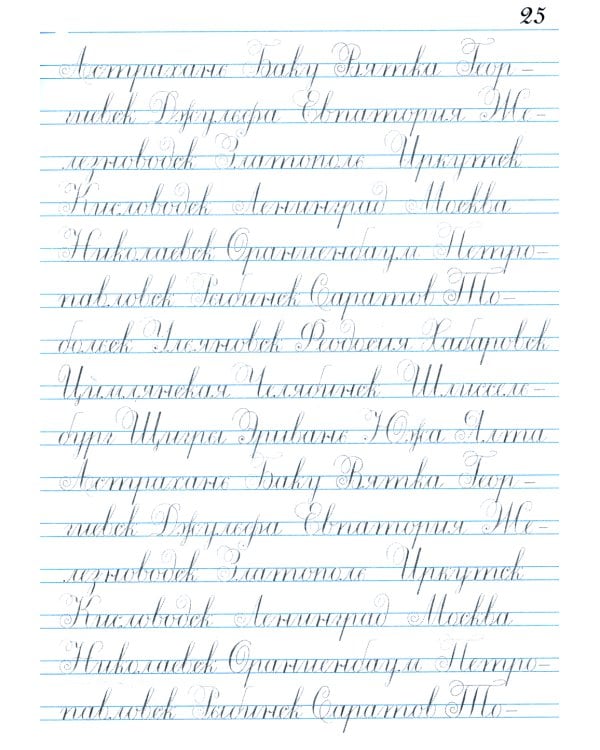 25
Астрахань Баку Вятка Геор-
гиевск Джульфа Евпатория Же-
лезноводск Златополь Иркутск
Кисловодск Ленинград Москва
Николаевск Ораниенбаум Петро-
павловск Рыбинск Саратов То-
больск Ульяновск Феодосия Хабаровск
Цымлянская Челябинск Шлиссель-
бург Щигры Эривань Южа Ялта
Астрахань Баку Вятка Геор-
гиевск Джульфа Евпатория Же-
лезноводск Златополь Иркутск
Кисловодск Ленинград Москва
Николаевск Ораниенбаум Петро-
павловск Рыбинск Саратов То-